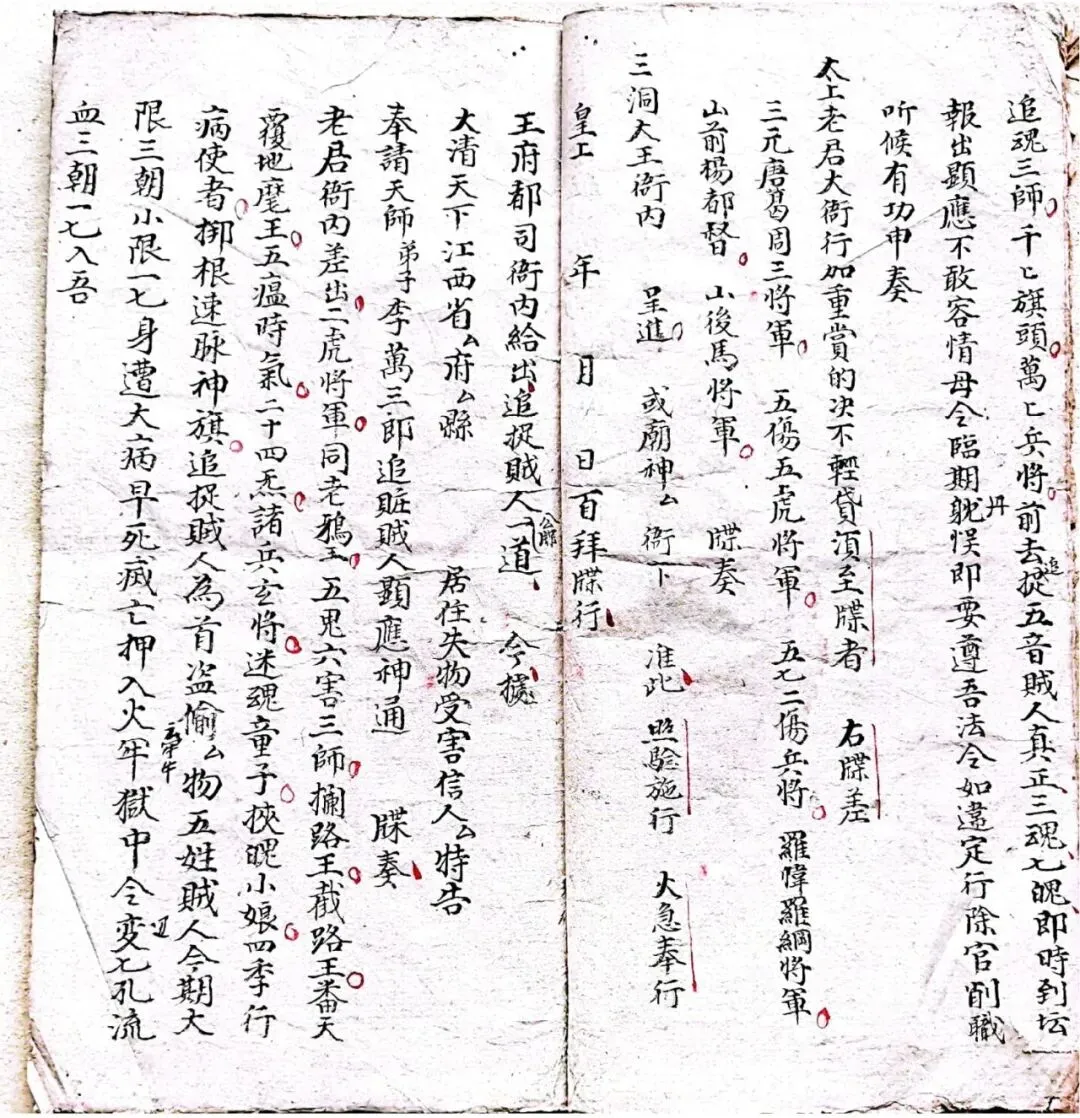 追魂三師千匕旗頭萬匕兵將前去追捉五音賊人真正三魂七魄即時到坛
報出顕應不敢容情毋令臨期躭悮即要遵吾法令如違定行除官削職
听候有功申奏
太上老君大衙行如重賞的决不輕貸須至牒者 右牒差
三元唐葛周三將軍 五傷五虎將軍 五七二傷兵將 羅幃羅綱將軍
山前楊都督 山後馬將軍 牒奏
三洞大王衙内 呈進 或廟神厶衙下 准此 照驗施行 火急奉行
皇上 年 月 日百拜牒行
王府都司衙内給出追捉賊人一道 今據
大清天下江西省厶府厶縣 居住失物受害信人厶特告
奉請天師弟子李萬三郎追賍賊人顕應神通 牒奏
老君衙内差出二虎將軍同老鴉王五鬼六害三師攔路王截路王番天
覆地魔王五瘟時氣二十四炁諸兵玄將迷魂童子挾魄小娘四季行
病使者挷根速脉神旗追捉賊人為首盗偷厶物五姓賊人今期大
限三朝小限一七身遭大病早死滅亡押入火牢獄中令変七孔流
血三朝一七入吾